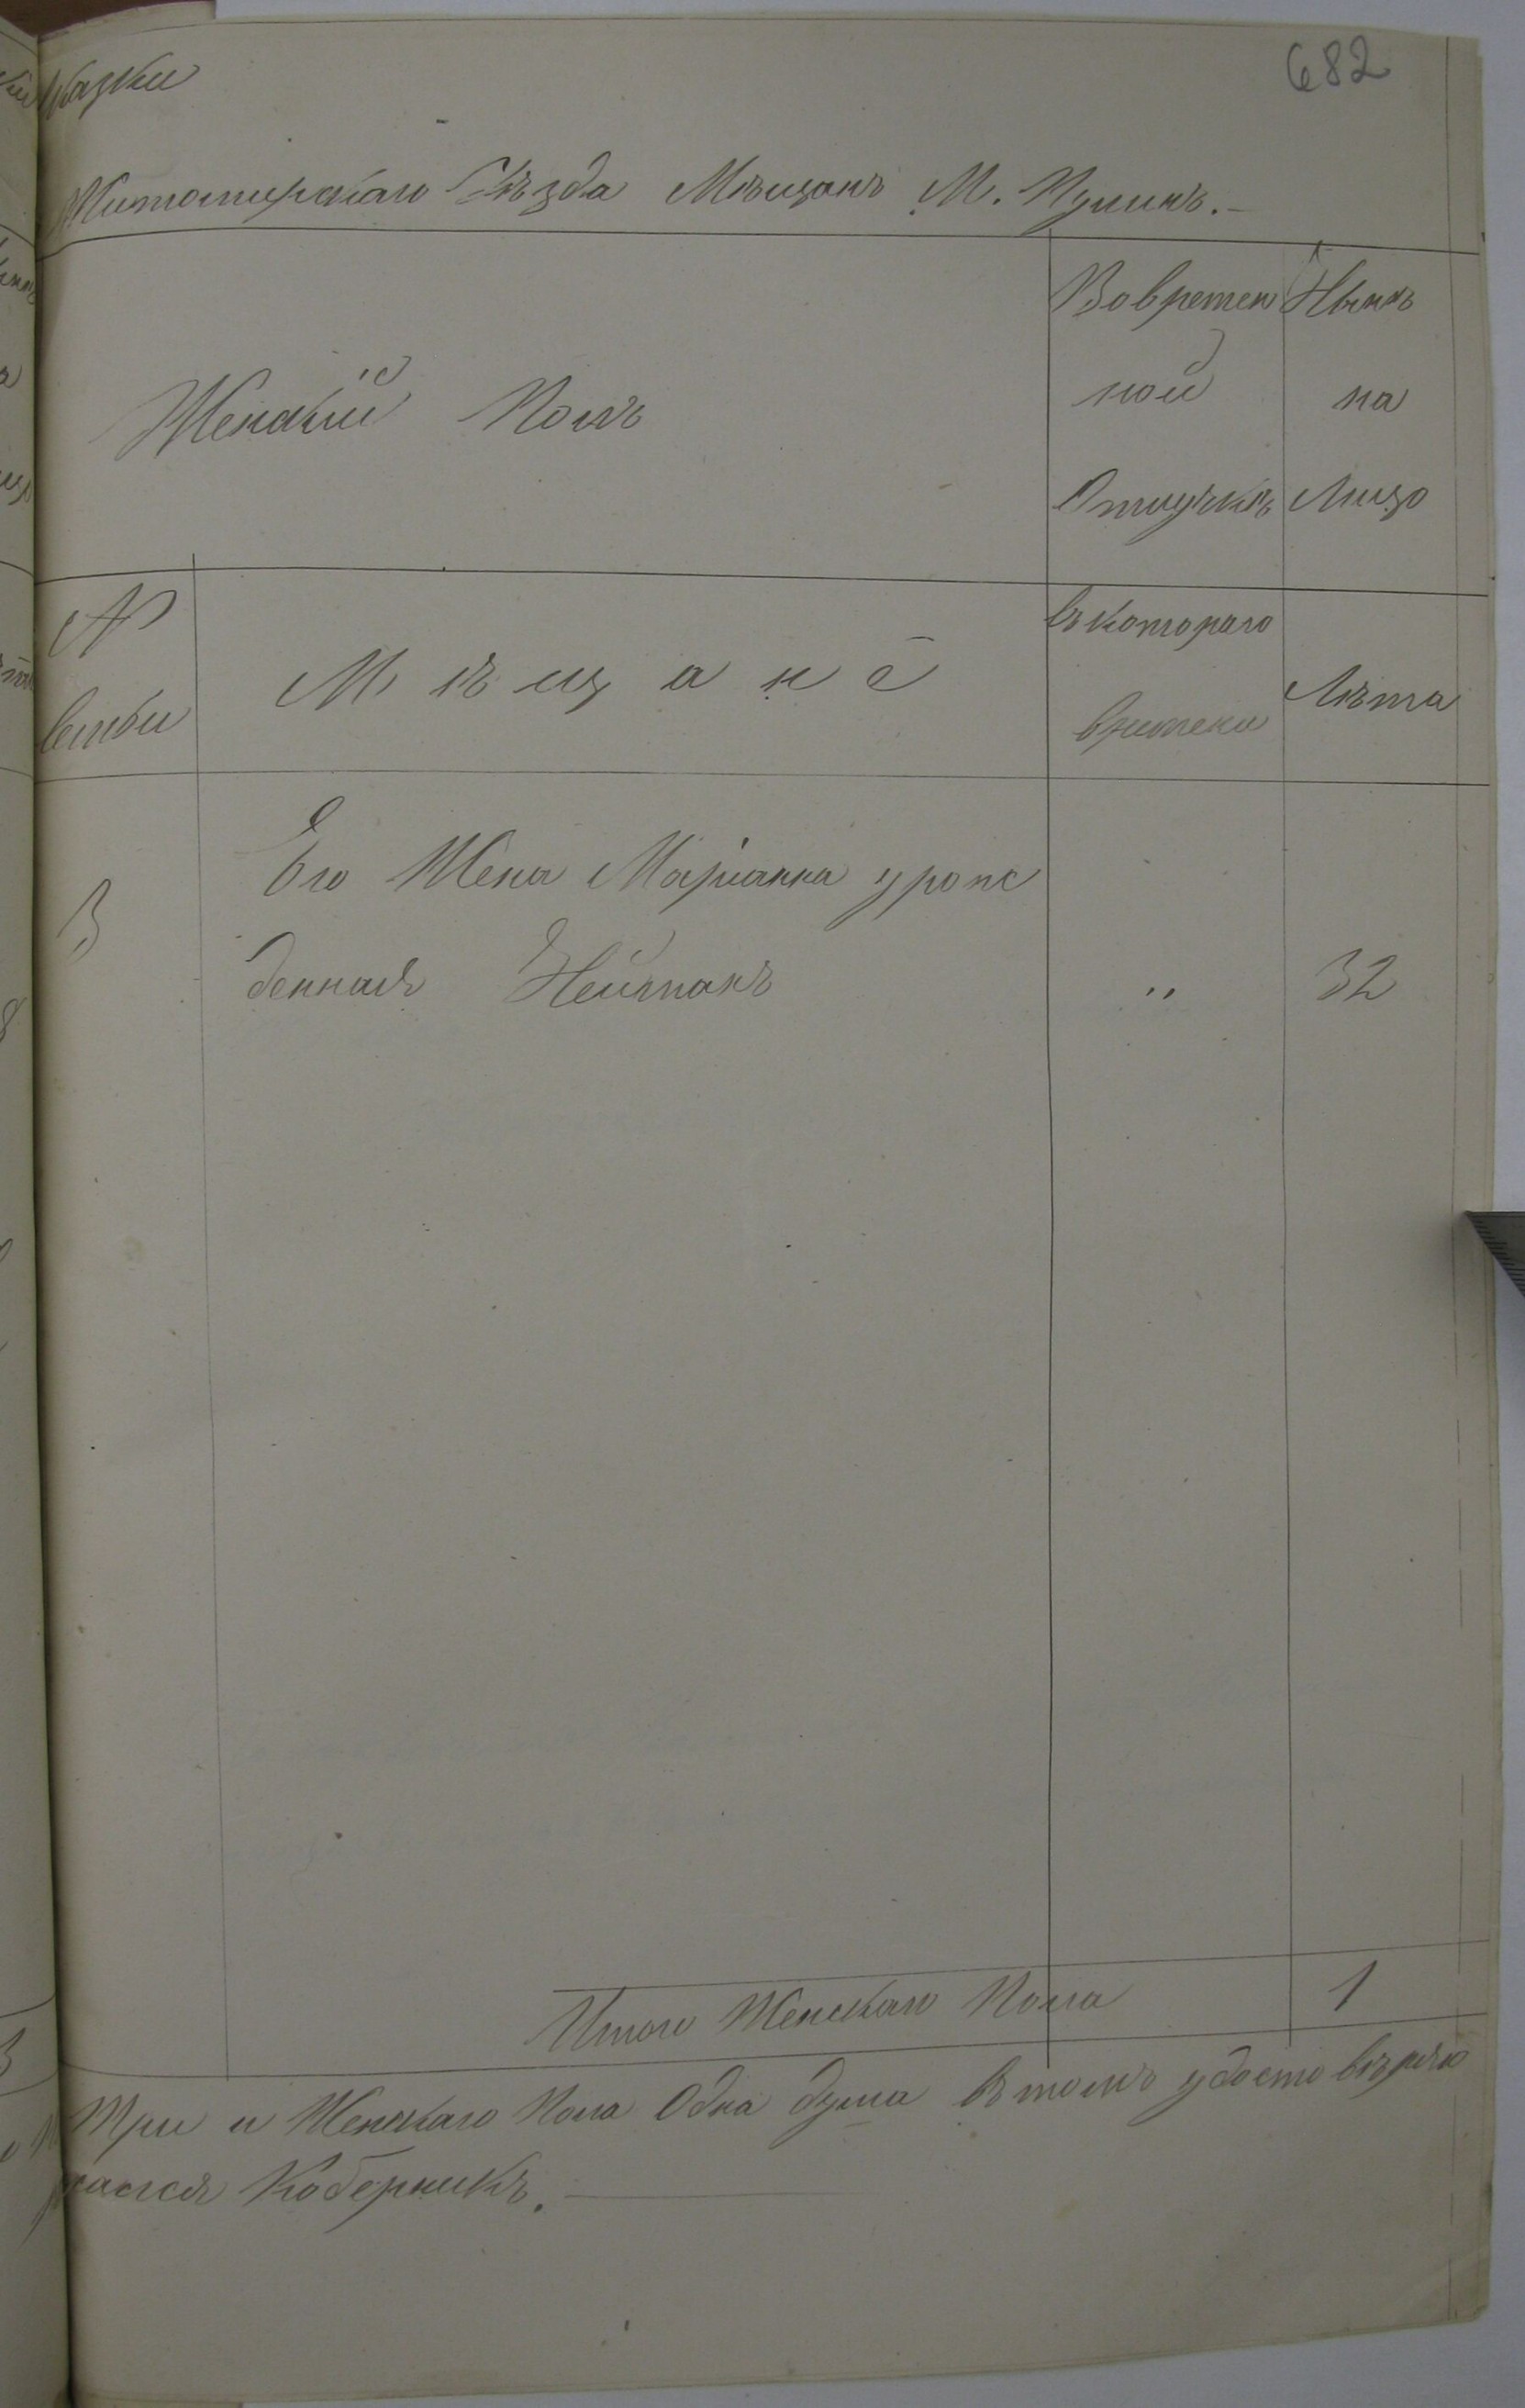 682
казки
Житомирскаго Уѣзда Мѣщанъ М. Пулинъ.
Женскій Полъ
Вовремен
ной
Отлучкѣ
Нынѣ
на
Лицо
№
семьи
Мѣщане
Съ котораго
времени
Лѣта
3
Его Жена Маріанна урож
денная Нейманъ
"
32
Итого Женскаго Пола
1
Три и Женскаго Пола Одна душа въ томъ удостовѣряю
Коберникъ.